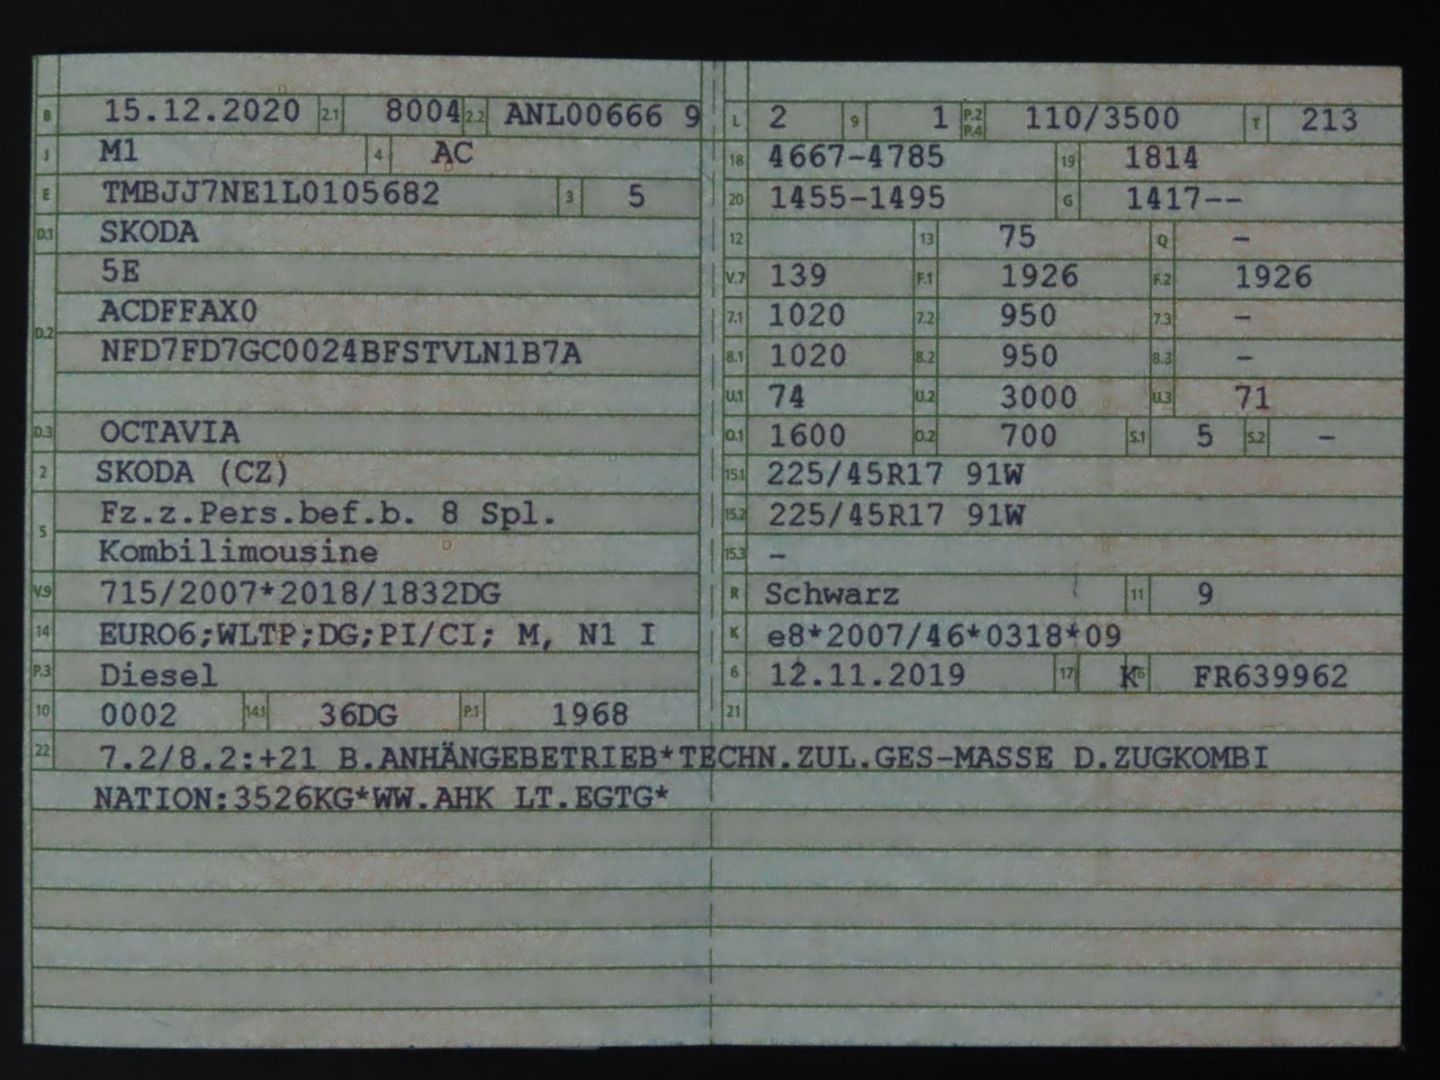 B 15.12.2020 2.1 8004 2.2 ANL00666 9
J M1 4 AC
E TMBJJ7NE1L0105682 3 5
D.1 SKODA
5E
D.2 ACDFFAX0
NFD7FD7GC0024BFSTVLN1B7A
D.3 OCTAVIA
2 SKODA (CZ)
5 Fz.z.Pers.bef.b. 8 Spl.
Kombilimousine
V.9 715/2007*2018/1832DG
14 EURO6;WLTP;DG;PI/CI; M, N1 I
P.3 Diesel
10 0002 14.1 36DG P.1 1968
L 2 9 1 P.2 P.4 110/3500 T 213
18 4667-4785 19 1814
20 1455-1495 G 1417--
12 13 75 Q -
V.7 139 F.1 1926 F.2 1926
7.1 1020 7.2 950 7.3 -
8.1 1020 8.2 950 8.3 -
U.1 74 U.2 3000 U.3 71
O.1 1600 O.2 700 S.1 5 S.2 -
15.1 225/45R17 91W
15.2 225/45R17 91W
15.3 -
R Schwarz 11 9
K e8*2007/46*0318*09
6 12.11.2019 17 K 16 FR639962
21
22 7.2/8.2:+21 B.ANHÄNGEBETRIEB*TECHN.ZUL.GES-MASSE D.ZUGKOMBI
NATION:3526KG*WW.AHK LT.EGTG*